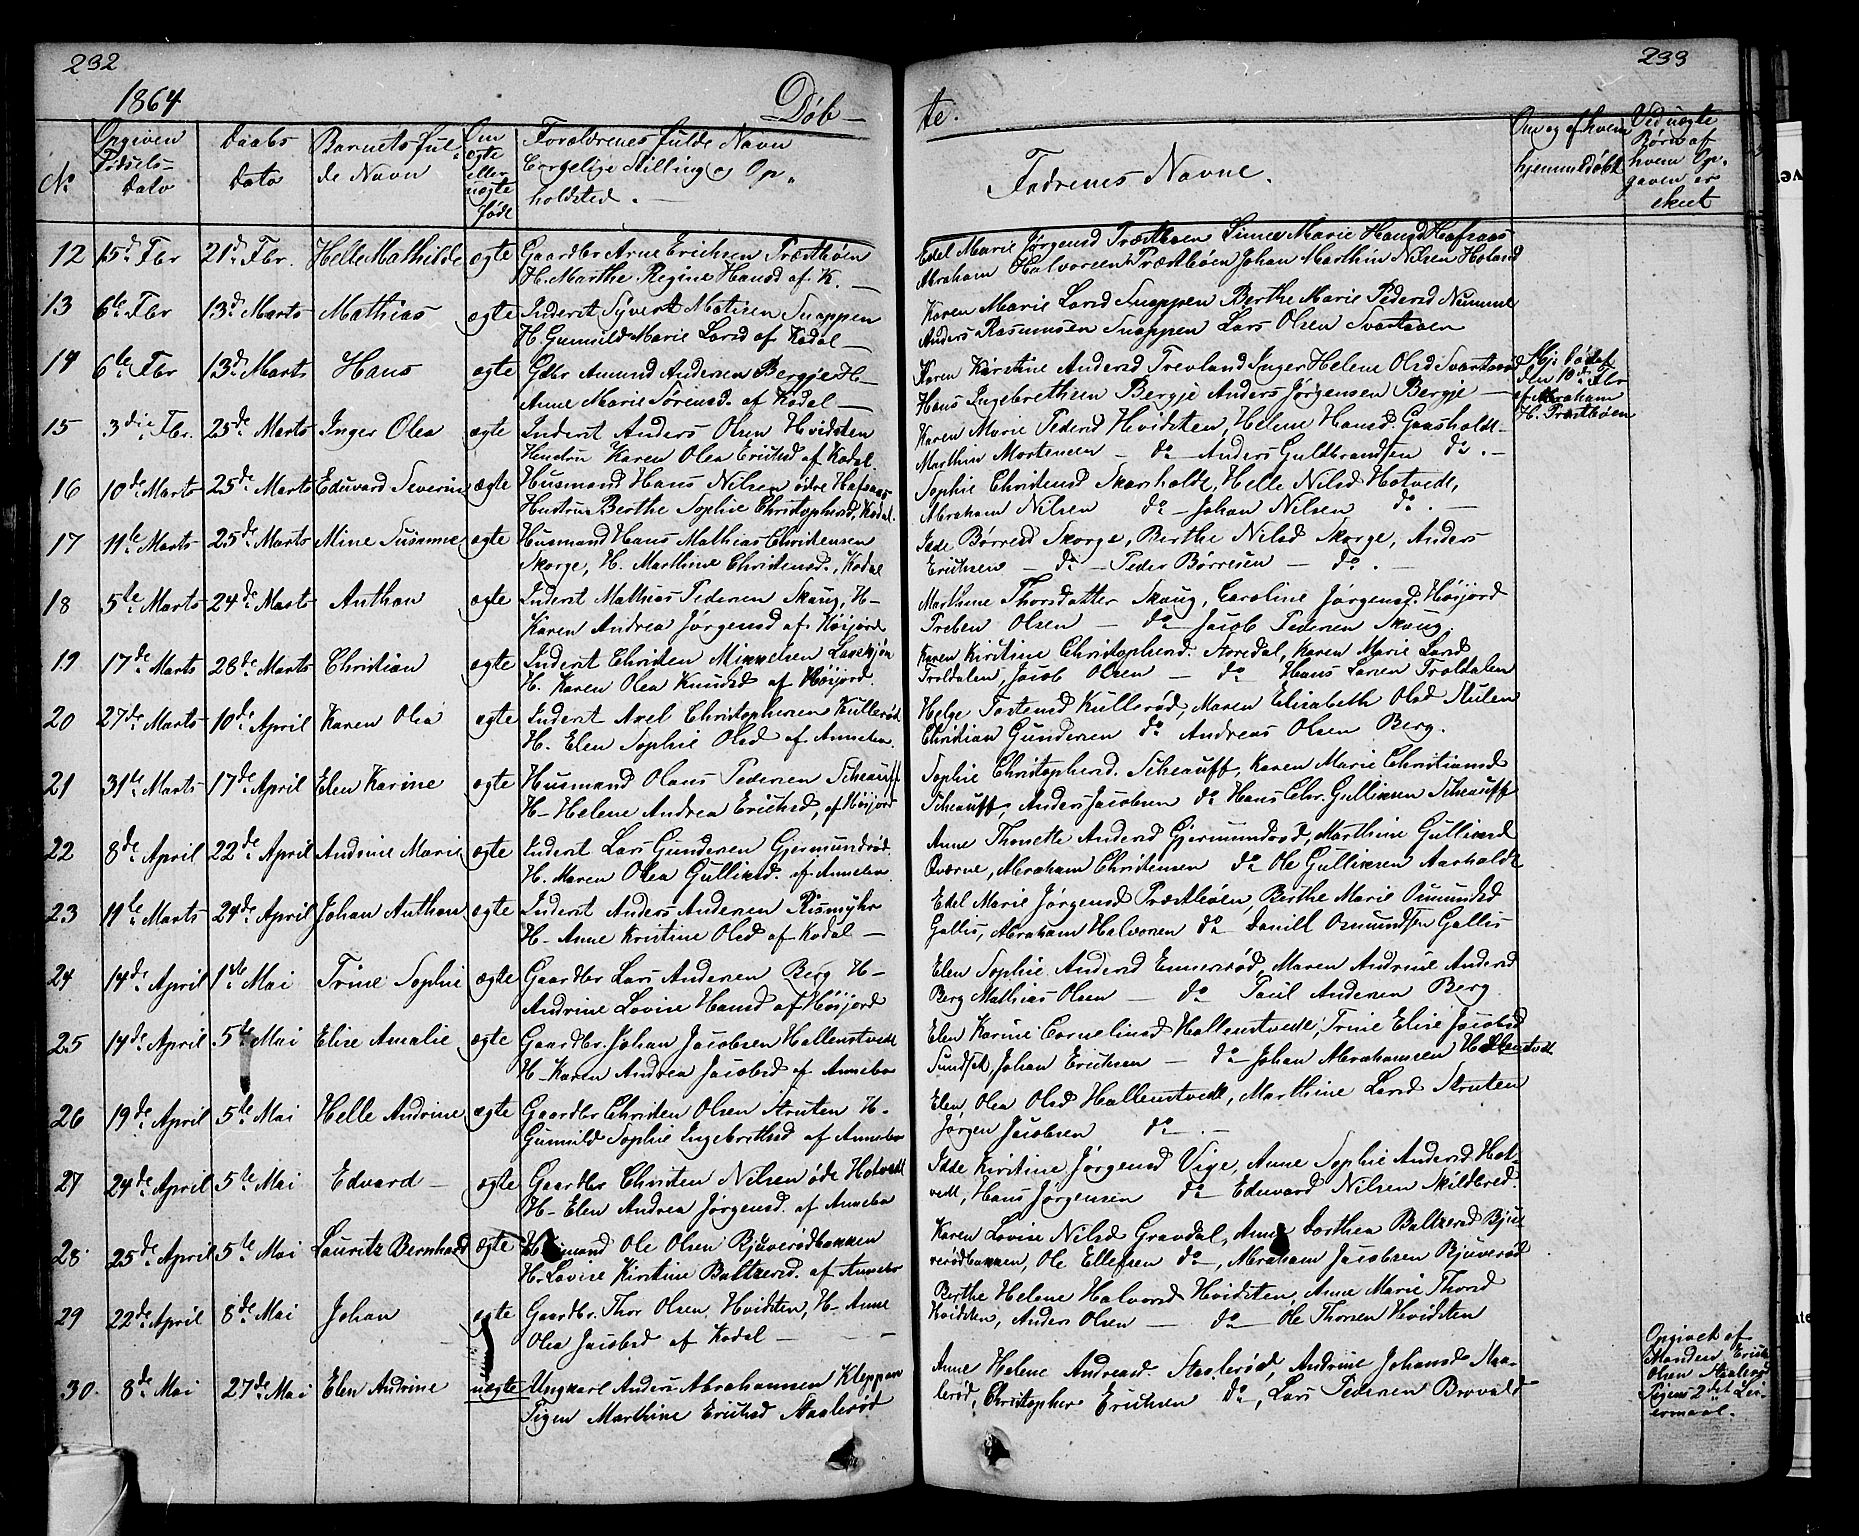 232
1864
Døb-
No
Opgiven Fødsels-Dato
Daabs Dato
Barnets fulde Navn
Om ægte eller uægte Født
Forældrenes fulde Navn Borgelige Stilling og Opholdsted.
12 15de Fbr 21de Fbr. Helle Mathilde ægte Gaardbr Arne Ericksen Præstbøen
H. Marthe Regine Hansd af K.
13 6te Fbr 13de Marts Mathias ægte Inderst Syvert Matisen Snappen
H. Gunnild Marie Larsd af Kodal
14 6te Fbr 13de Marts Hans ægte Gdbr Amund Andersen Bergje H-
Anne Marie Sørensd. af Kodal
15 3die Fbr. 25de Marts Inger Olea ægte Inderst Anders Olsen Hvidsten
Hustru Karen Olea Ericksd af Kodal.
16 10de Marts 25de Marts Eduvard Severin ægte Husmand Hans Nilsen ødre Hafsaas
Hustrue Berthe Sophie Christophersd. Kodal.
17 11te Marts 25de Marts Mine Susanne ægte Husmand Hans Mathias Christensen
Skorge, H. Marthine Christensd., Kodal
18 5te Marts 24de Marts Anthon ægte Inderst Mathias Pedersen Skaug, H-
Karen Andrea Jørgensd af Høijord
19 17de Marts 28de Marts Christian ægte Inderst Christen Mikkelsen
H. Karen Olea Knudsd af Høijord.
20 27de Marts 10de April Karen Olea ægte Inderst Axel Christophersen Kullerød
H. Elen Sophie Olsd af Annebo.
21 31te Marts 17de April Elen Karine ægte Husmand Olaus Pedersen Scheauff
H- Helene Andrea Ericksd, af Høijord
22 8de April 22de April Andrine Marie ægte Inderst Lars Gundersen Gjermundrød.
H. Maren Olea Gulliksd. af Annebo.
23 11te Marts 24de April Johan Anthon ægte Inderst Anders Andersen Rismyhr
H- Anne Kristine Olsd af Kodal
24 14de April 1ste Mai Trine Sophie ægte Gaardbr Lars Andersen Berg H-
Andrine Lovise Hansd af Høijord
25 14de April 5te Mai Elise Amalie ægte Gaardbr. Johan Jacobsen Hallenstvedt
H- Karen Andrea Jacobsd af Annebo
26 19de April 5te Mai Helle Andrine ægte Gaardbr Christen Olsen Struten H-
Gunnild Sophie Ingebrethsd af Annebo
27 24de April 5te Mai Edvard ægte Gaardbr Christen Nilsen øde Hotvedt
H- Elen Andrea Jørgensd. af Annebo
28. 25de April 5te Mai Lauritz Bernhard ægte Husmand Ole Olsen Bjuerødbakken
H. Lovise Kirstine Baltzersd. af Annebo
29 22de April 8de Mai Johan ægte Gaardbr. Thor Olsen Hvidsten, H- Anne
Olea Jacobsd af Kodal
30. 8de Mai 27de Mai Elen Andrine uægte Ungkarl Anders Abrahamsen Kleppan
Pigen Marthine Ericksd Staalerød
233
te.
Fadrenes Navne.
Om og af hvem hjemmedøbt
Ved uægte Børn af hvem Opgaven er skeet
Edel Marie Jørgensd Præstbøen Sinne Marie Hansd Hafsaas
Abraham Halvorsen Præstbøen Johan Marthin Nilsen Holand
Karen Marie Larsd Snappen Berthe Marie Pedersd Nomme
Anders Rasmussen Snappen Lars Olsen Svartaaen
Karen Kirstine Andersd Trevland Inger Helene Olsd Svartaaen
Hans Ingebrethsen Bergje Anders Jørgensen Bergje
Hjs. Døbt
den 10de Fbr
af Abraham
H. Præstbøen
Karen Marie Pedersd Hvidsten, Helene Hansd. Gaasholdt-
Marthin Mortensen - do - Anders Guldbrandsen do. -
Sophie Christensd Skarsholdt, Helle Nilsd Hotvedt,
Abraham Nilsen do - Johan Nilsen do.
Idde Børresd Skorge, Berthe Nilsd Skorge, Anders
Ericksen - do - Peder Børresen - do.
Marthine Thorsdatter Skaug, Caroline Jørgensd. Høijord
Preben Olsen - do Jacob Pedersen Skaug.
Karen Kirstine Christophersd. Storedal, Karen Marie Larsd
Troldalen, Jacob Olsen - do Hans Larsen Troldalen
Helge Tostensd Kullerød, Maren Elisabeth Olsd Stulen
Christian Gundersen do Andreas Olsen Berg.
Sophie Christophersd. Scheauff, Karen Marie Christiansd
Scheauff, Anders Jacobsen do Hans Chr. Gulliksen Scheauff
Anne Thonette Andersd Gjermundrød, Marthine Gulliksd
Qværne, Abraham Christensen do Ole Gulliksen Aarholdt
Edel Marie Jørgensd Præstbøen, Berthe Marie Osmundsd
Gallis, Abraham Halvorsen do Daniel Osmundsen Gallis
Elen Sophie Andersd Ennersrød, Maren Andrine Andersd
Berg Mathias Olsen - do Paul Andersen Berg
Elen Karine Corneliusd Hallenstvedt, Trine Elise Jacobsd
Sundset, Johan Ericksen - do - Johan Abrahamsen Hallenstvedt
Elen Olea Olsd Hallenstvedt, Marthine Larsd Struten
Jørgen Jacobsen do -
Idde Kirstine Jørgensd Vige, Anne Sophie Andersd Hot-
vedt, Hans Jørgensen do - Eduvard Nilsen Skildbred.
Karen Lovise Nilsd Gravdal, Anne Dorthea Baltzersd Bjue
rødbakken, Ole Ellefsen do, Abraham Jacobsen Bjuerød
Berthe Helene Halvorsd Hvidsten, Anne Marie Thorsd
Hvidsten, Anders Olsen - do - Ole Thorsen Hvidsten
Anne Helene Andreasd. Staalerød, Andrine Johansd Staa-
lerød, Christopher Ericksen do, Lars Pedersen Brovald
Opgivet af
Manden Erick
Olsen Staalerød
Pigens 2det Lei-
ermaal.